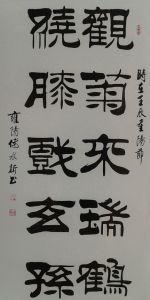 觀菊來瑞鶴
繞膝戲玄孫
時在壬辰重陽節
雍清德永新书